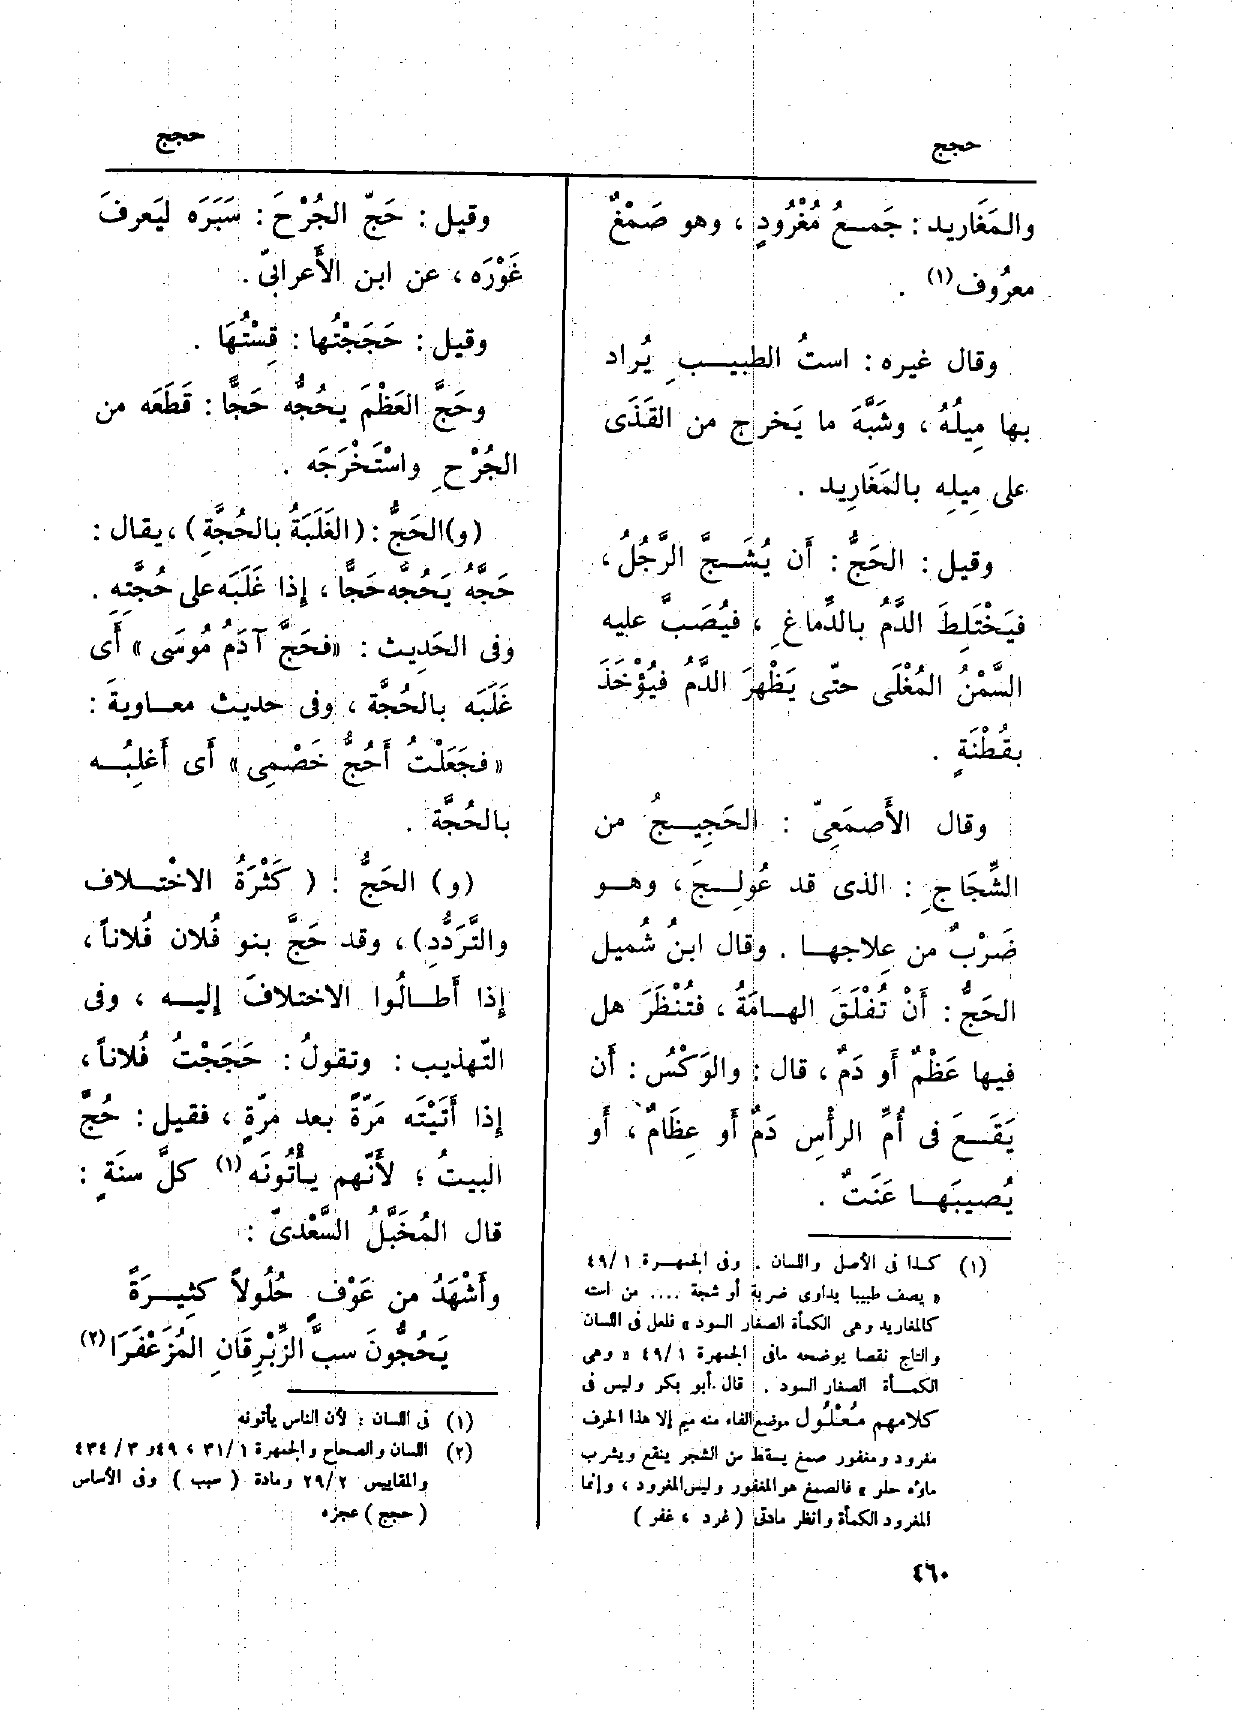 حجج
حجج
والمَغَاريد : جَمـعُ مُغْرُودٍ ، وهو صَمْغٌ
معرُوف (١) .
وقال غيره : استُ الطبيـبِ يُراد
بها مِيلُهُ ، وشَبَّهَ ما يَخرج من القَذَى
على مِيلِه بالمَغَارِيد .
وقيل : الحَجُّ : أن يُشَـجَّ الرَّجُلُ ،
فيَخْتَلِطَ الدَّمُ بالدَّماغِ ، فيُصَبَّ عليه
السَّمْنُ المُغْلَى حتّى يَظْهرَ الدَّمُ فيُؤْخَذَ
بقُطْنَةٍ .
وقال الأَصمَعِىّ : الحَجِيـجُ من
الشِّجَاجِ : الذى قد عُولِـجَ ، وهـو
ضَرْبٌ من عِلاجهـا . وقال ابنُ شُميل
الحَجُّ : أَنْ تُفْلَقَ الهـامَةُ ، فتُنْظَرَ هل
فيها عَظْمٌ أَو دَمٌ ، قال : والوَكْسُ : أَن
يَقَـعَ فى أُمِّ الرأْسِ دَمٌ أَو عِظَامٌ ، أَو
يُصيبَهـا عَنَتٌ .
(١) كـذا فى الأصل واللسان . وفى الجمهـرة ٤٩/١
« يصف طبيبا يداوى ضربة أو شجة .... من است
كالمغاريد وهى الكمأة الصغار السود » فلعل فى اللسان
والتاج نقصا يوضحه مافى الجمهرة ٤٩/١ « وهى
الكمـأة الصغار السود . قال أبو بكر وليس فى
كلامهم مُعْلُول موضع الفاء منه ميم إلا هذا الحرف
مغرود ومغفور صمغ يسقط من الشجر ينقع ويشرب
ماؤه حلو » فالصمغ هو المغفور وليس المغرود ، وإنما
المغرود الكمأة وانظر مادتى ( غرد ، غفر )
وقيل : حَجّ الجُرْحَ : سَبَرَه ليَعرفَ
غَوْرَه ، عن ابن الأَعرابىّ .
وقيل : حَجَجْتُها : قِسْتُهَا .
وحَجَّ العَظْمَ يحُجُّه حَجًّا : قَطَعَه من
الجُرْحِ واسْتَخْرَجَه .
(و) الحَجُّ : (الغَلَبَةُ بالحُجَّةِ) ، يقال :
حَجَّهُ يَحُجُّه حَجًّا ، إِذا غَلَبَه على حُجَّتِهِ .
وفى الحَدِيث : «فحَجَّ آدَمُ مُوسَى» أَى
غَلَبَه بالحُجَّة ، وفى حديث معـاويةَ :
« فجَعَلْتُ أَحُجُّ خَصْمِى » أَى أَغلِبُـه
بالحُجَّة .
(و) الحَجُّ : ( كَثْرَةُ الاخْتـلاف
والتَّرَدُّدِ) ، وقد حَجَّ بنو فُلان فُلاناً ،
إِذا أَطـالُوا الاختلافَ إِليـه ، وفى
التّهذيب : وتقولُ : حَجَجْتُ فُلاناً ،
إِذا أَتَيْتَه مَرّةً بعد مرّةٍ ، فقيل : حُجَّ
البيتُ ؛ لأَنّهم يـأْتُونَه (١) كلَّ سنَةٍ :
قال المُخَبَّلُ السَّعْدىّ :
وأَشْهَدُ من عَوْفٍ حُلُولاً كثِيـرَةً
يَحُجُّونَ سبَّ الزِّبْرِقَانِ المُزَعْفَرَا (٢)
(١) فى اللسان : لأن الناس يأتونه
(٢) اللسان والصحاح والجمهرة ٣١/١ ، ٤٩ و ٤٣٤/٣
والمقاييس ٢٩/٢ ومادة ( سبب ) وفى الأساس
( حجج ) عجزه
٤٦٠